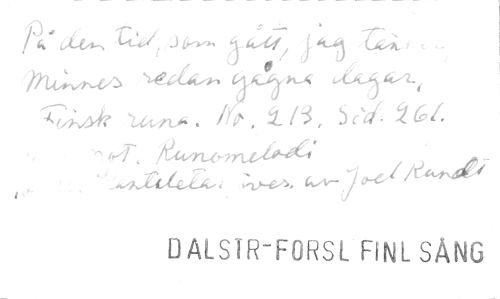 På den tid, som gått, jag tänker,
Minnes redan gågna dagar,
Finsk runa. No. 213. Sid. 261.
Runomelodi
övers. av Joel Rundt
DALSTR-FORSL FINL SÅNG